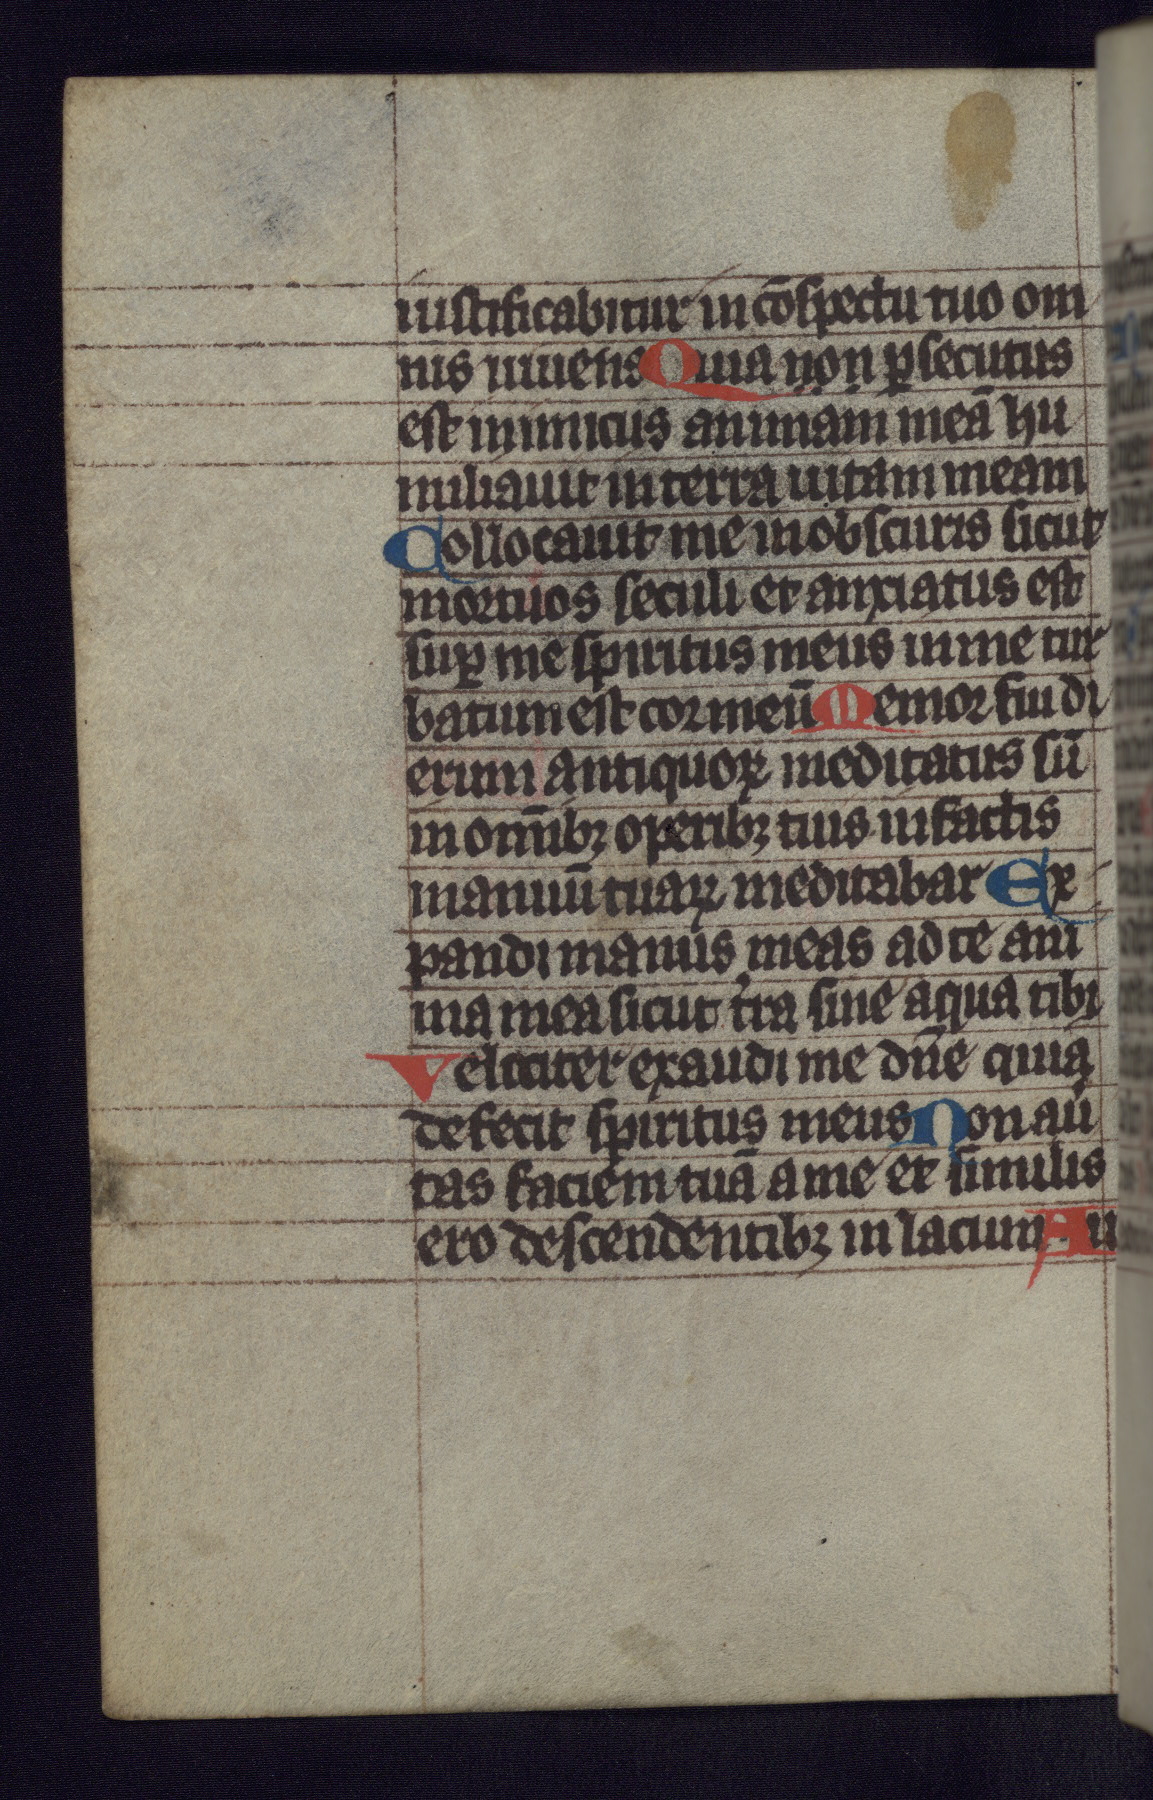 iustificabitur in cōspectu tuo om
nis uiuens Quia non ꝑsecutus
est inimicus animam meā hu
miliauit in terra uitam meam
Collocauit me in obscuris sicut
mortuos seculi et anxiatus est
suꝑ me spiritus meus in me tur
batum est cor meū Memor fui di
erum antiquoꝝ meditatus sū
in om̄ibꝫ operibꝫ tuis in factis
manuū tuaꝝ meditabar Ex
pandi manus meas ad te ani
ma mea sicut t̾ra sine aqua tibi
Velociter exaudi me dn̄e quia
defecit spiritus meus Non au̾
tas faciem tuā a me et similis
ero descendentibꝫ in lacum Au